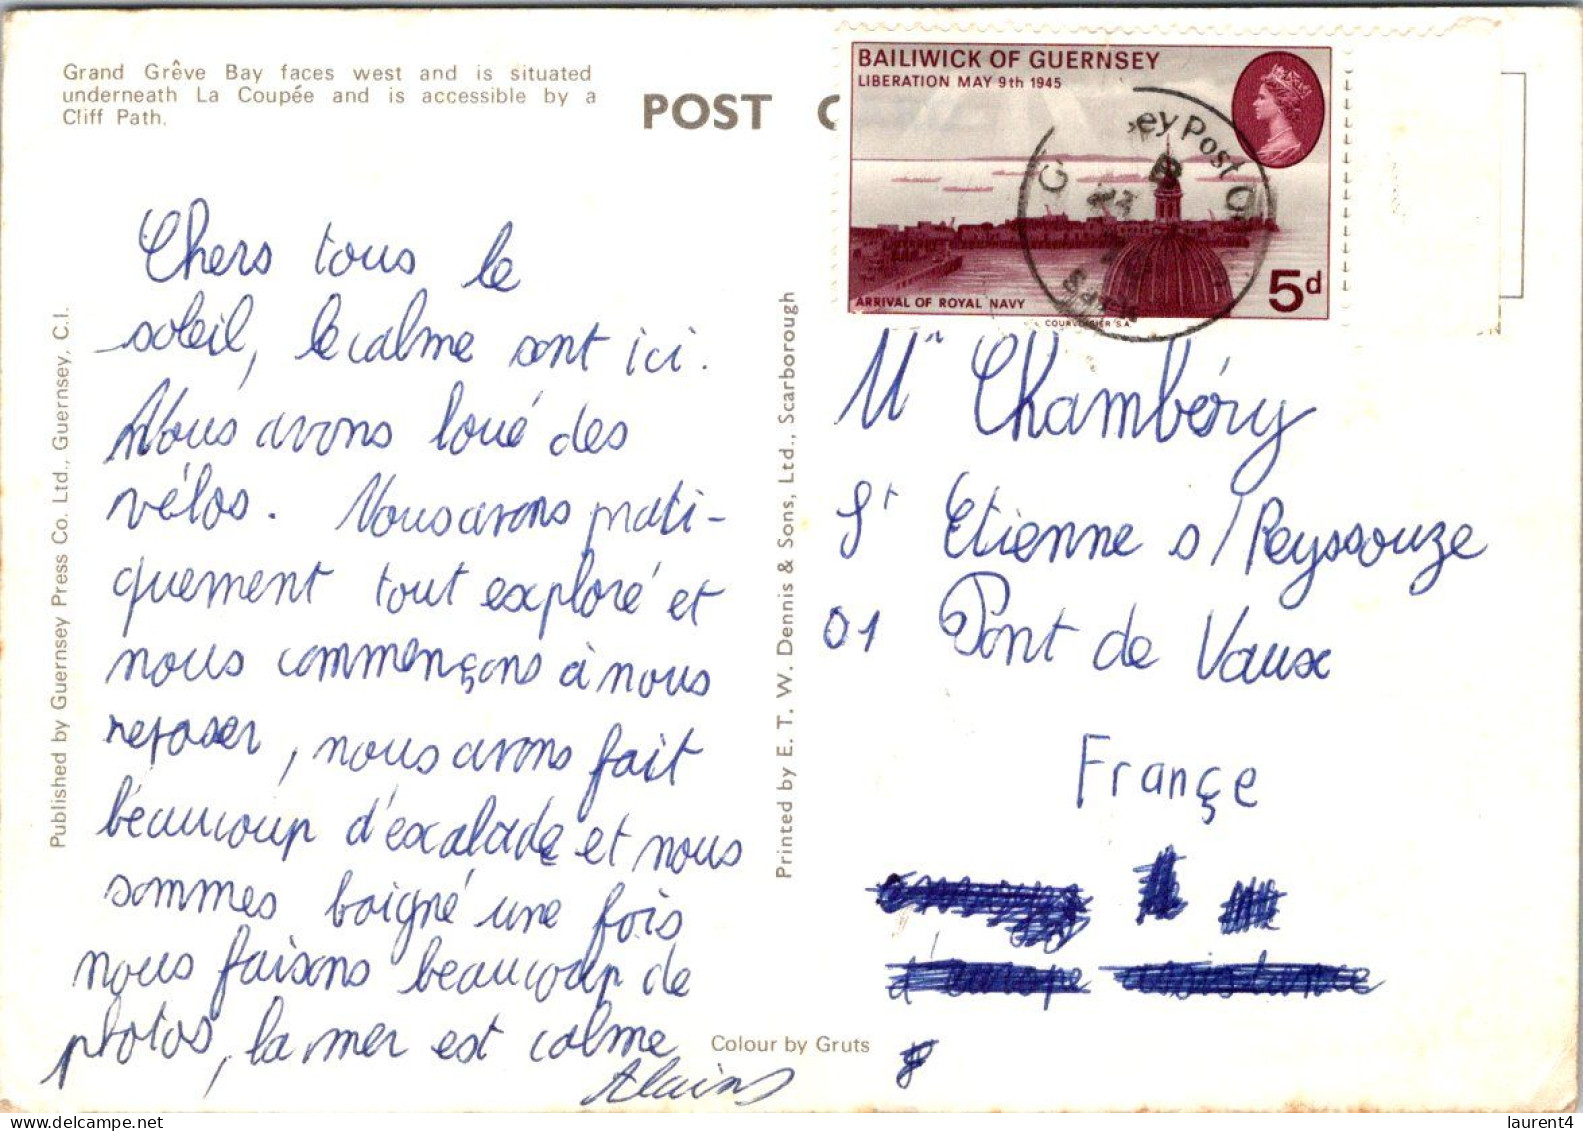 Grand Grêve Bay faces west and is situated
underneath La Coupée and is accessible by a
Cliff Path.
POST C
BAILIWICK OF GUERNSEY
LIBERATION MAY 9th 1945
ey Post O
ARRIVAL OF ROYAL NAVY
5d
COURVOISIER S.A.
Chers tous le
soleil, le calme sont ici.
Nous avons loué des
vélos. Nous avons prati-
quement tout exploré et
nous commençons à nous
reposer, nous avons fait
beaucoup d'escalade et nous
sommes baigné une fois
nous faisons beaucoup de
photos, la mer est calme
Alains
Published by Guernsey Press Co. Ltd., Guernsey, C.I.
Printed by E. T. W. Dennis & Sons, Ltd., Scarborough
Colour by Gruts
Mr Chambéry
St Etienne s/Reyssouze
01 Pont de Vaux
Françe
d'europe assistance
delcampe.net
laurent4